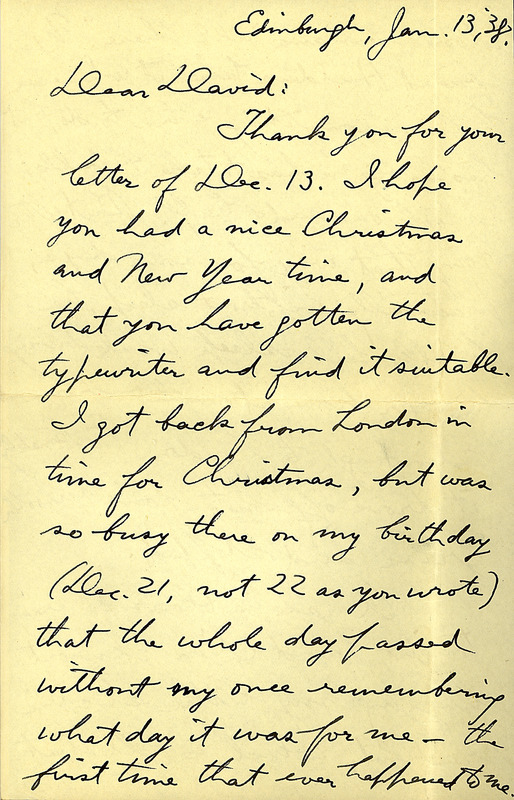 Edinburgh, Jan. 13, '38.
Dear David:
Thank you for your
letter of Dec. 13. I hope
you had a nice Christmas
and New Year time, and
that you have gotten the
typewriter and find it suitable.
I got back from London in
time for Christmas, but was
so busy there on my birthday
(Dec. 21, not 22 as you wrote)
that the whole day passed
without my once remembering
what day it was for me — the
first time that ever happened to me.